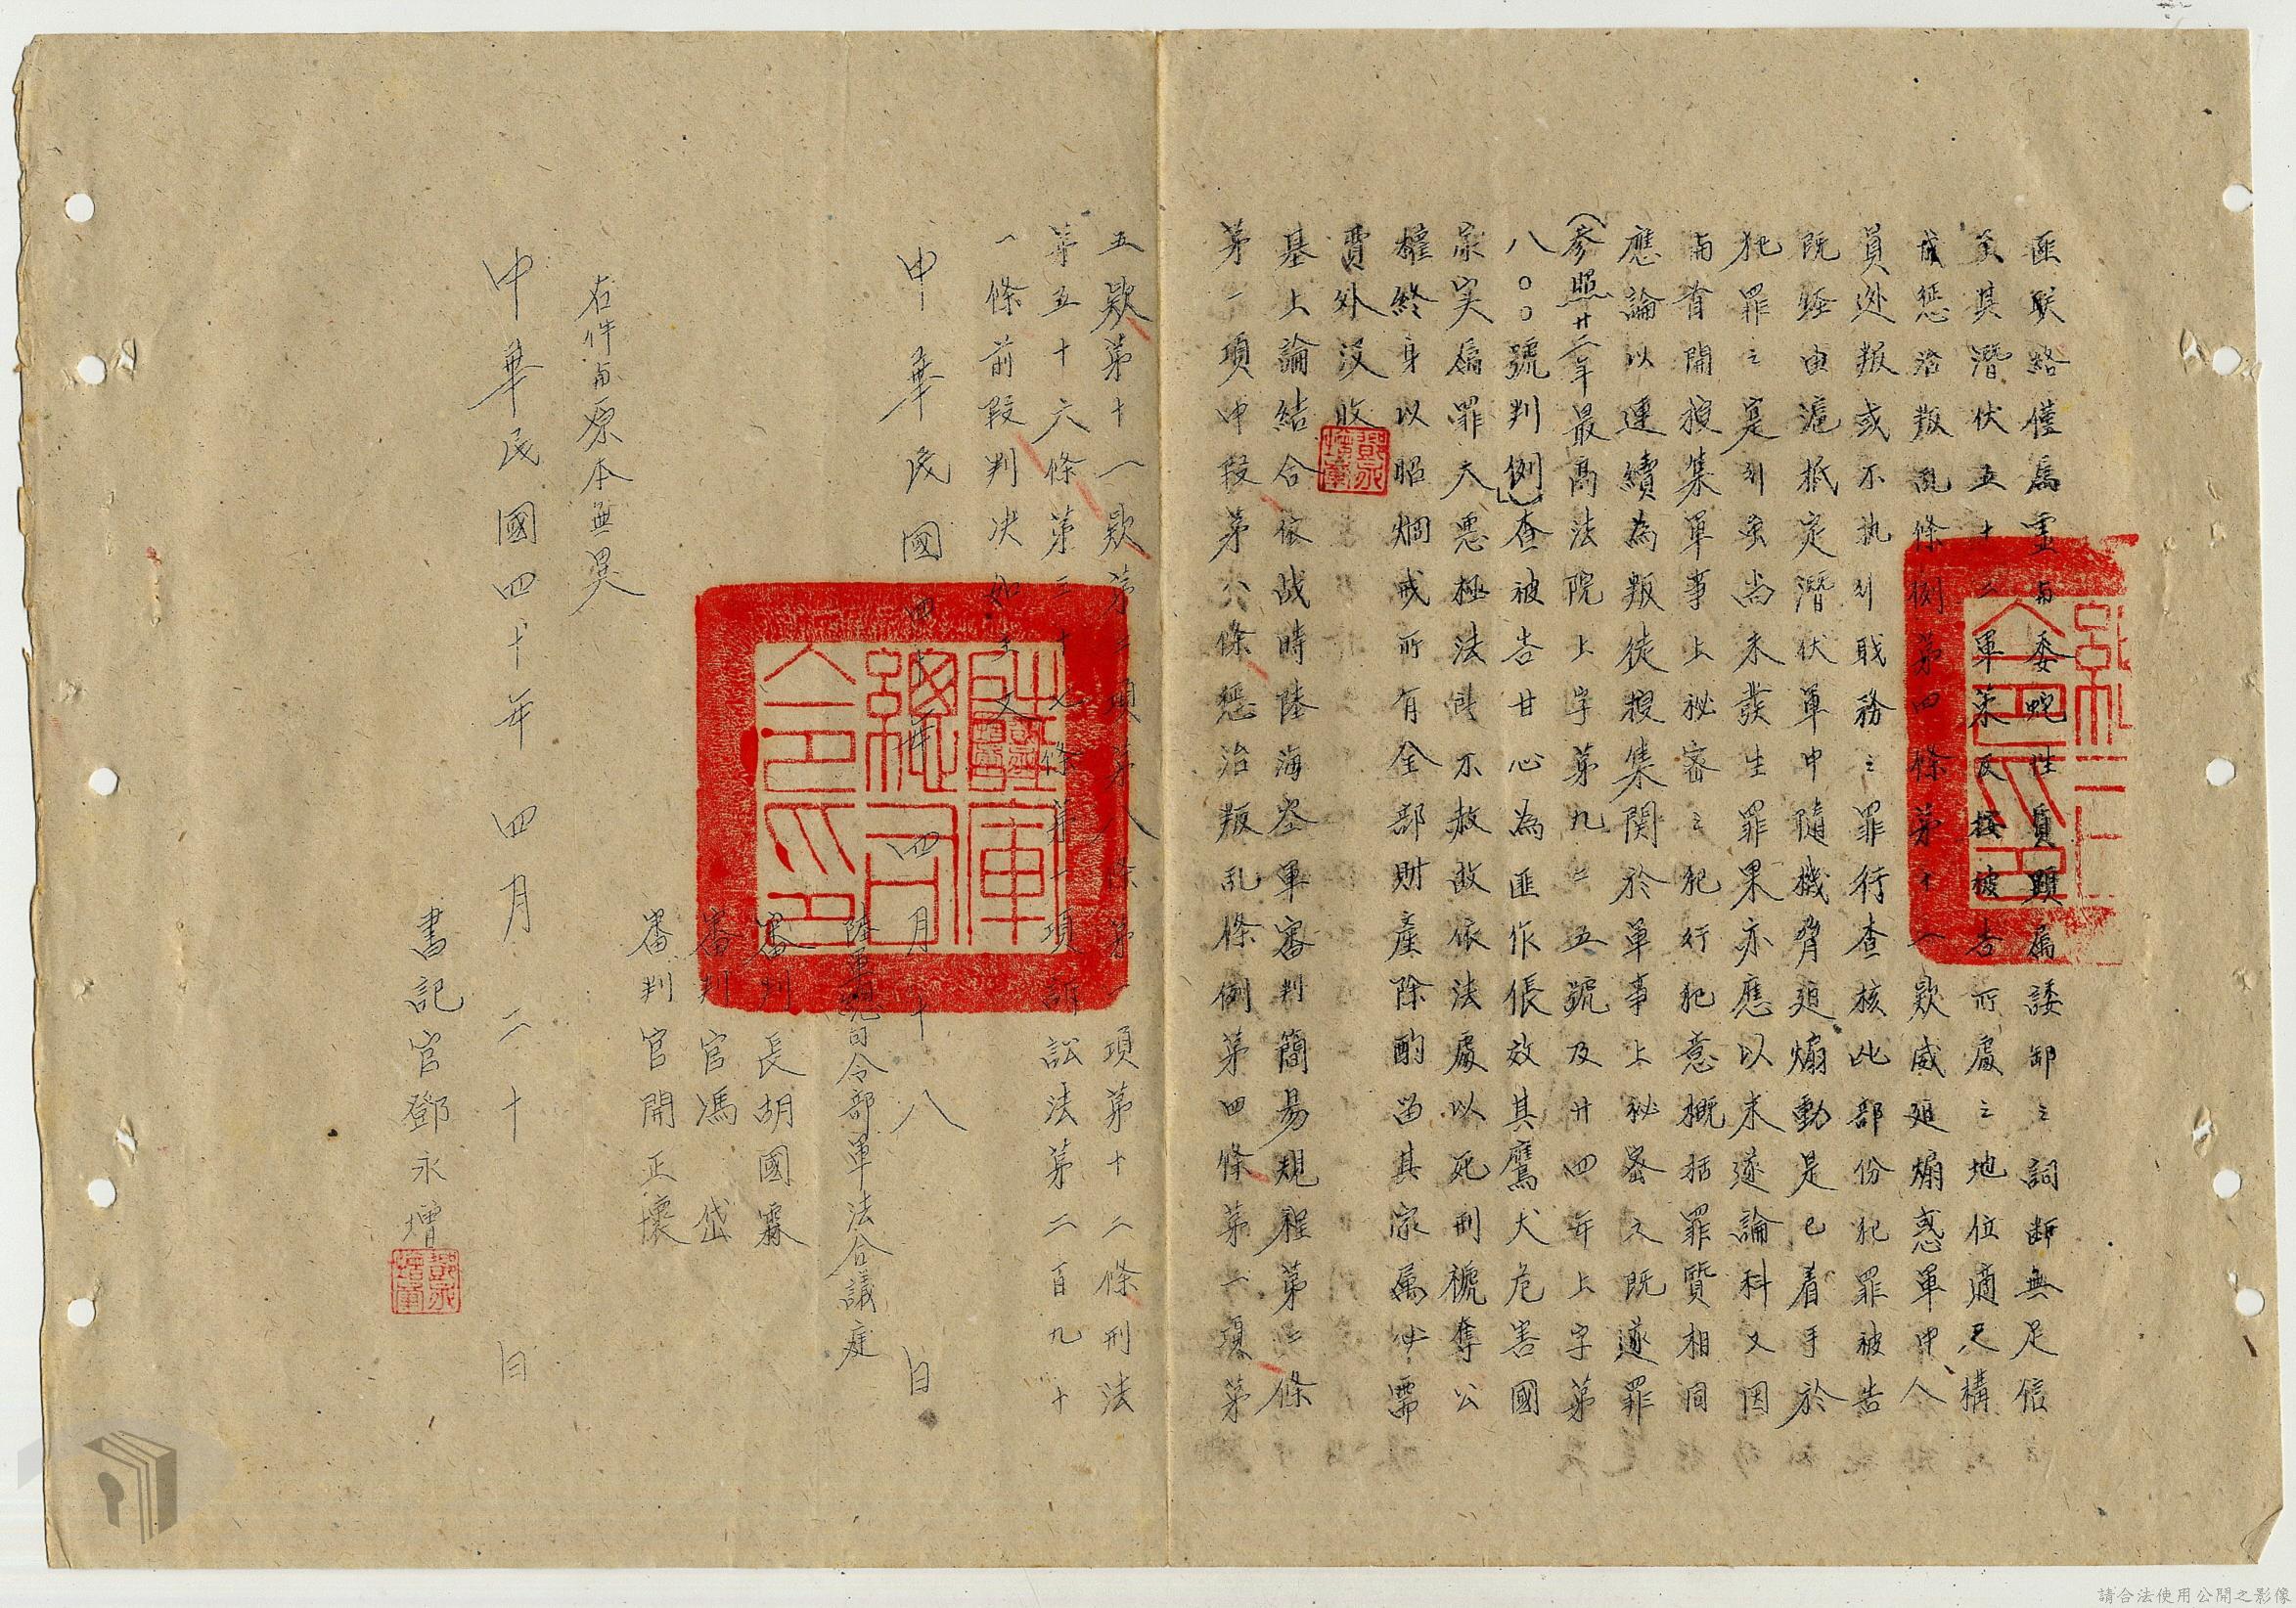 匪联絡僅為虛与委蛇性質顯属諉卸之詞断無足信
至其潛伏五十二軍策反按被告所處之地位適足構
成惩治叛乱条例第四條第十一款威廹煽惑軍中人
員逃叛或不执行職務之罪行查核此部份犯罪被告
既経由滬抵定潛伏軍中隨機脅廹煽動是已着手於
犯罪之寔行虽尚未發生罪果亦應以未遂論科又因
而省開搜集軍事上祕密之犯行犯意概括罪質相同
應論以連續為叛徒搜集関於軍事上祕密之既遂罪
(參照廿二年最高法院上字第九二五號及廿四年上字第
八〇〇號判例)查被告甘心為匪作倀效其鷹犬危害國
家实属罪大惡極法所不赦故依法處以死刑褫奪公
權終身以昭烱戒所有全部財產除酌留其家属必需
費外没收
基上論結合依战時陸海空軍審判簡易規程第二條
第一項中段第八條惩治叛乱條例第四條第一項第
五款第十一款第三項第八條第一項第十二條刑法
第五十六條第三十七條第一項訴訟法第二百九十
一條前段判决如主文
中華民國四十年四月十八日
陸軍總司令部軍法合議庭
審判長胡國霖
審判官馮岱
審判官開正懷
右件与原本無異
中華民國四十年四月二十日
書記官鄧永增
陸軍總司令印
鄧永增章
請合法使用公開之影像